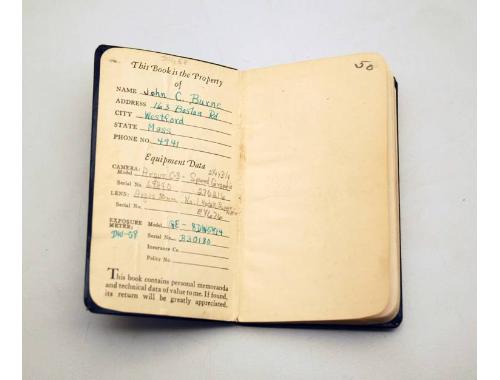 50
This Book is the Property
of
NAME John C. Burne
ADDRESS 163 Boston Rd
CITY Westford
STATE Mass
PHONE NO. 4741
Equipment Data
CAMERA:
Model Argus C-3 - Speed
Serial No.
LENS: Argus
Serial No.
EXPOSURE Model GE -
METER: Serial No. B30180
DW-58 Insurance Co.
Policy No.
This book contains personal memoranda
and technical data of value to me. If found,
its return will be greatly appreciated.